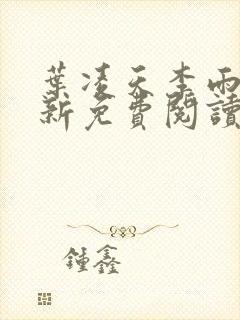 葉凌天李雨
新免費閱讀
鍾鑫